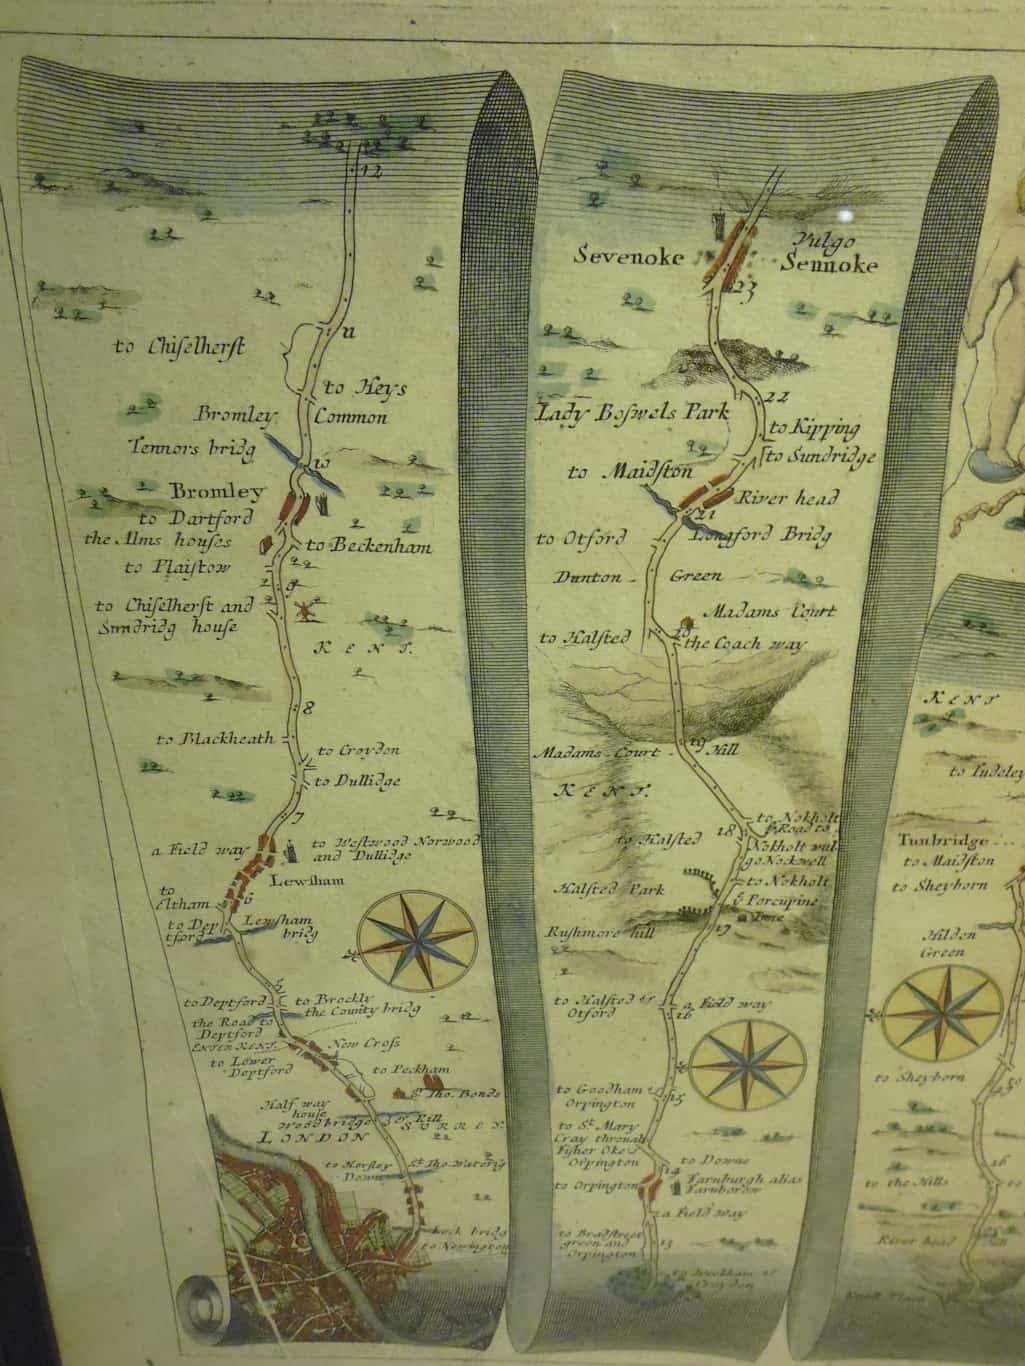 12
11
to Chiſelherſt
to Heys
Bromley Common
Tennors bridg
10
Bromley
to Dartford
the Alms houſes
to Beckenham
to Plaiſtow
9
to Chiſelherſt and
Sundridg houſe
KENT.
8
to Blackheath
to Croydon
to Dullidge
7
a Field way
to Weſtwood Norwood
and Dullidge
Lewſham
to
Eltham
6
to Dep
tford
Lewſham
bridg
5
to Deptford
to Brockly
the County bridg
the Road to
Deptford
ENTER KENT
New Croſs
to Lower
Deptford
to Peckham
Sr. Tho. Bonds
Half way
houſe
Woodbridge or Rill
SURREY
LONDON
to Horſley
Down
St. Tho. Waterig
Lock bridg
to Newington
Sevenoke
Vulgo
Sennoke
23
22
Lady Boſwels Park
to Kipping
to Sundridge
to Maidſton
River head
21
Longford Bridg
to Otford
Dunton Green
Madams Court
20
to Halſted
the Coach way
19
Madams Court Hill
KENT.
to Nokholt
ye Road to
18
to Halſted
Nokholt vul
go Nockwell
to Nokholt
Halſted Park
ye Porcupine
Inne
17
Ruſhmore hill
to Halſted &
Otford
a Field way
16
to Goodham
Orpington
15
to St. Mary
Cray through
Fiſher Oke &
Orpington
to Downe
14
Farnburgh alias
Farnborow
to Orpington
a Field way
to Bradſtreet
green and
Orpington
13
to Wickham &
Croydon
KENT
to Tudeley
Tunbridge
to Maidſton
to Sheyborn
Hilden
Green
to Sheyborn
26
to the Hills
River head